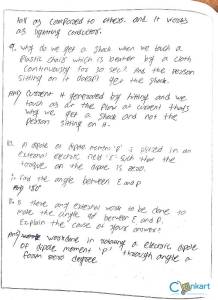 tall as compared to others. and it works
as lightning conductors.
9. Why do we get a shock when we touch a
Plastic chair which is beaten by a cloth
continuously for 30 sec? and the person
sitting on it doesn't get the shock.
Ans) Current is generated by hitting and we
touch as or the flow of current that's
why we get a shock and not the
person sitting on it.
10. A dipole of dipole moment 'P' is placed in an
external electric field 'E' such that the
torque on the dipole is zero.
1. Find the angle between E and P
Ans 180°
2. is there any external work to be done to
make the angle of between E and P.
Explain the cause of your answer?
Ans) workdone in rotating a electric dipole
of dipole moment 'P' through angle a
from zero degree.
Clankart